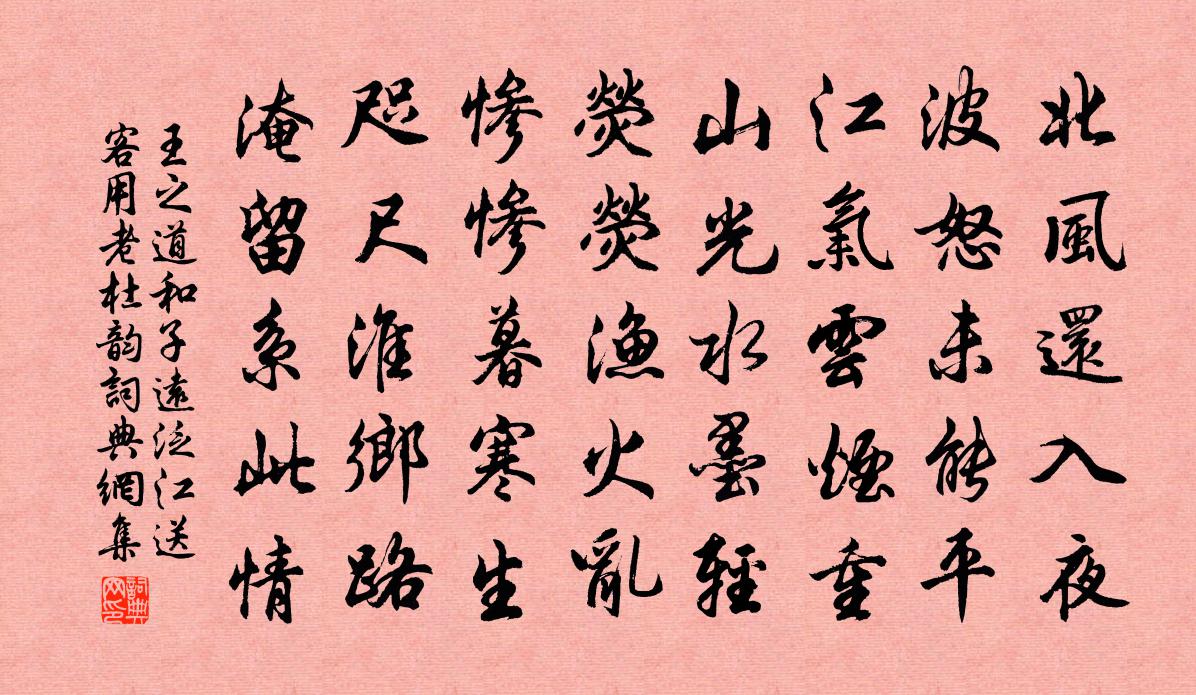 北風還入夜
波怒未能平
江氣雲煙重
山光水墨輕
熒熒漁火亂
慘慘暮寒生
咫尺淮鄉路
淹留系此情
王之道和子遠泛江送
客用老杜韵詞典網集
詞典网印